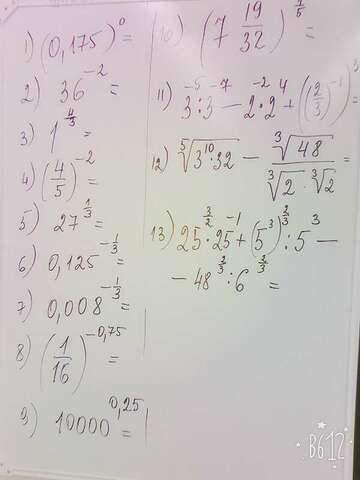 1) (0,175)⁰ =
2) 36⁻² =
3) 1^(4/3) =
4) (4/5)⁻² =
5) 27^(1/3) =
6) 0,125^(-1/3) =
7) 0,008^(-1/3) =
8) (1/16)^(-0,75) =
9) 10000^(0,25) =
10) (7 19/32)^(7/5) =
11) 3⁻⁵ : 3⁻⁷ - 2⁻² · 2⁴ + ((2/3)⁻¹)³ =
12) ⁵√(3¹⁰ · 32) - ³√48 / (³√2 · ³√2) =
13) 25^(3/2) · 25⁻¹ + (5³)^(2/3) : 5³ -
- 48^(2/3) : 6^(2/3) =
B612